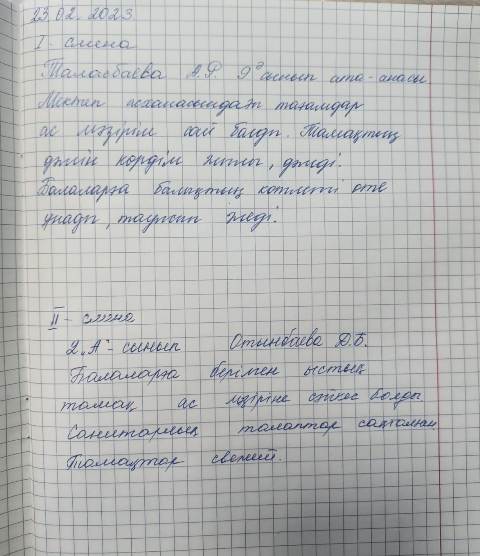 23.02.2023
I - смена
Таласбаева А.Р. 9 сынып ата-анасы.
Мектеп асханасындағы тағамдар
ас мәзіріне сай болды. Тамақтың
дәмін көрдім жақсы, дәмді.
Балаларға балықтың котлеті өте
ұнады, тауысып жеді.
II - смена
2 "А" - сынып Отынбаева Д.Б.
Балаларға берілген ыстық
тамақ ас мәзіріне сәйкес болды
Санитарлық талаптар сақталған
Тамақтар свежий.